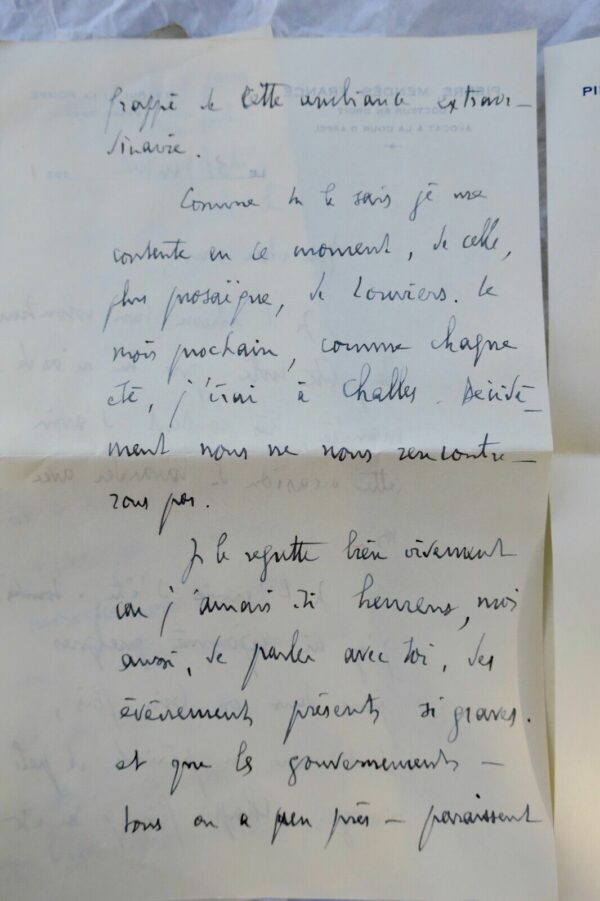 frappé de cette ambiance extraor-
dinaire.
Comme tu le sais je me
contente en ce moment, de celle,
plus prosaïque, de Louviers. Le
mois prochain, comme chaque
été, j'irai à Challes. Décidé-
ment nous ne nous rencontre-
rons pas.
Je le regrette bien vivement
car j'aurais été heureux, moi
aussi, de parler avec toi, des
événements présents si graves.
et que les gouvernements -
tous ou à peu près - paraissent
PIERRE MENDÈS FRANCE
DOCTEUR EN DROIT
AVOCAT A LA COUR D'APPEL
LE
PI